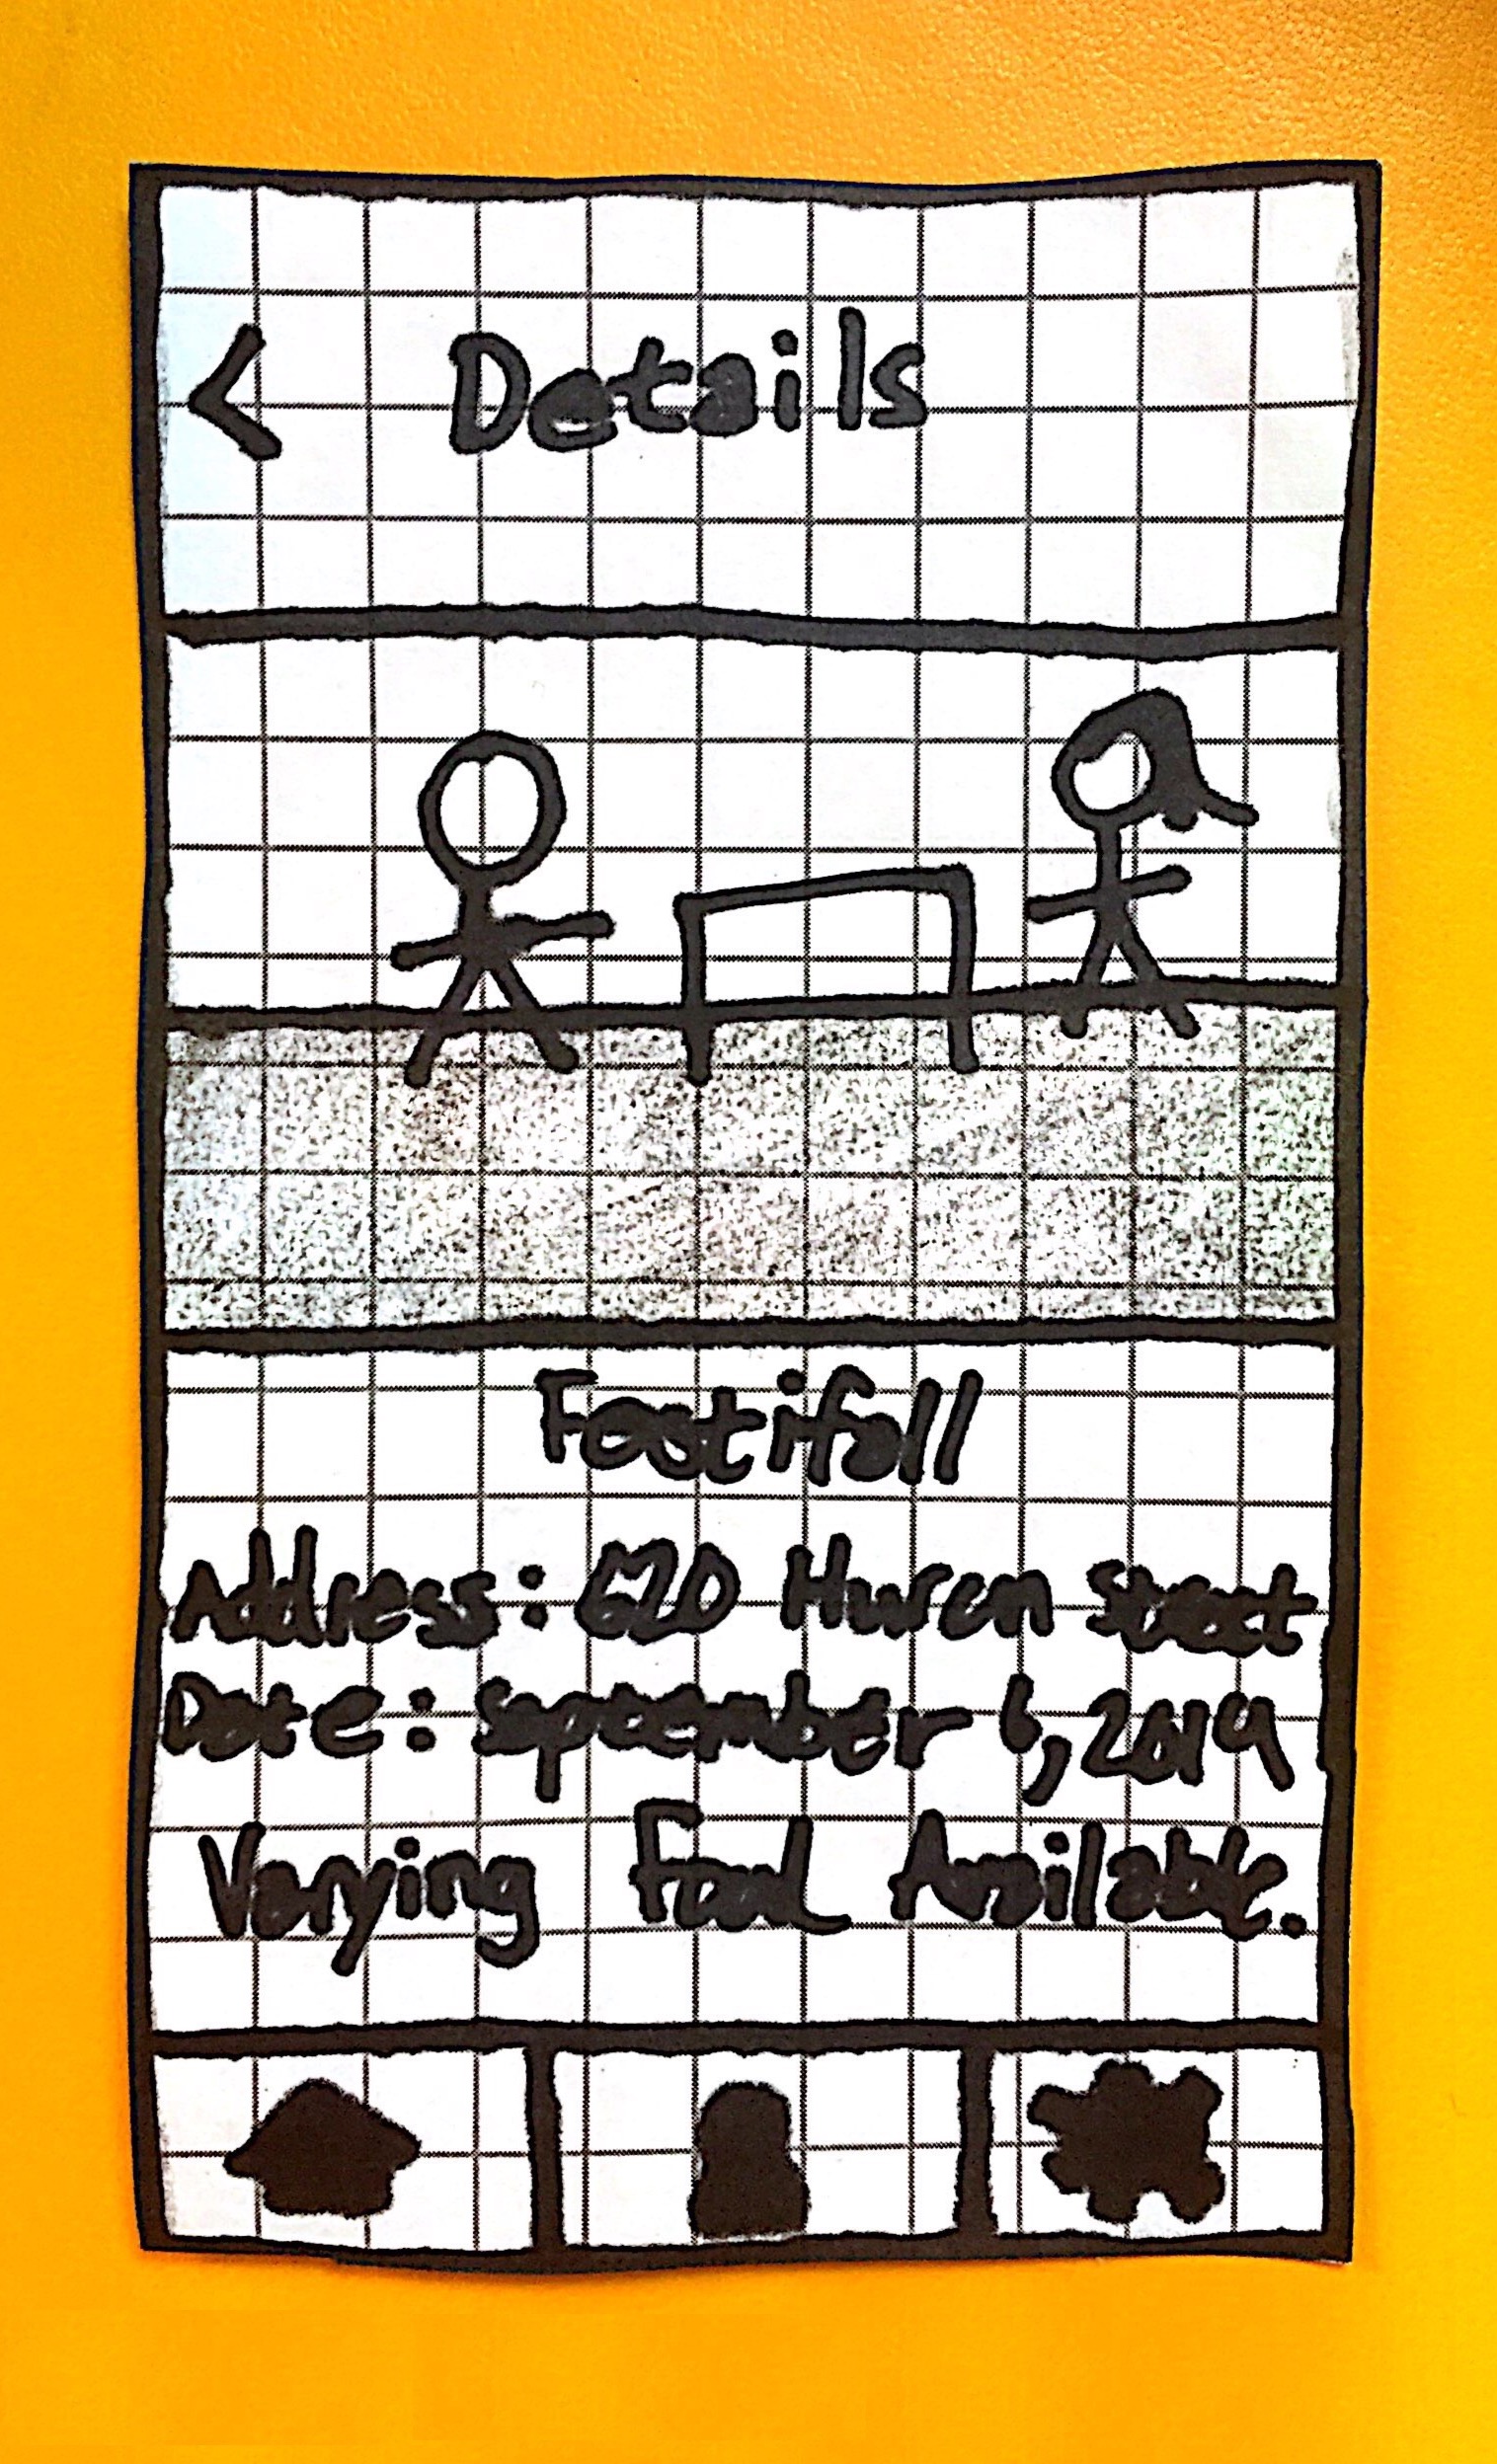 < Details
Festifall
Address: 620 Huron Street
Date: September 6, 2019
Varying Food Available.